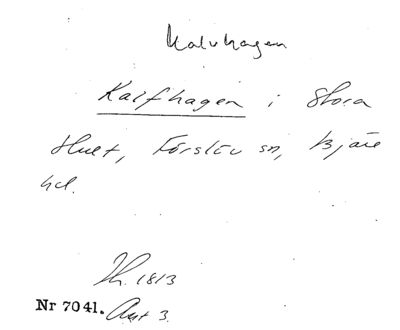 Kalvhagen
Kalfhagen i Stora
Hult, Förslöv sn, Bjäre
hd.
Th. 1813
Nr 7041. Akt 3.